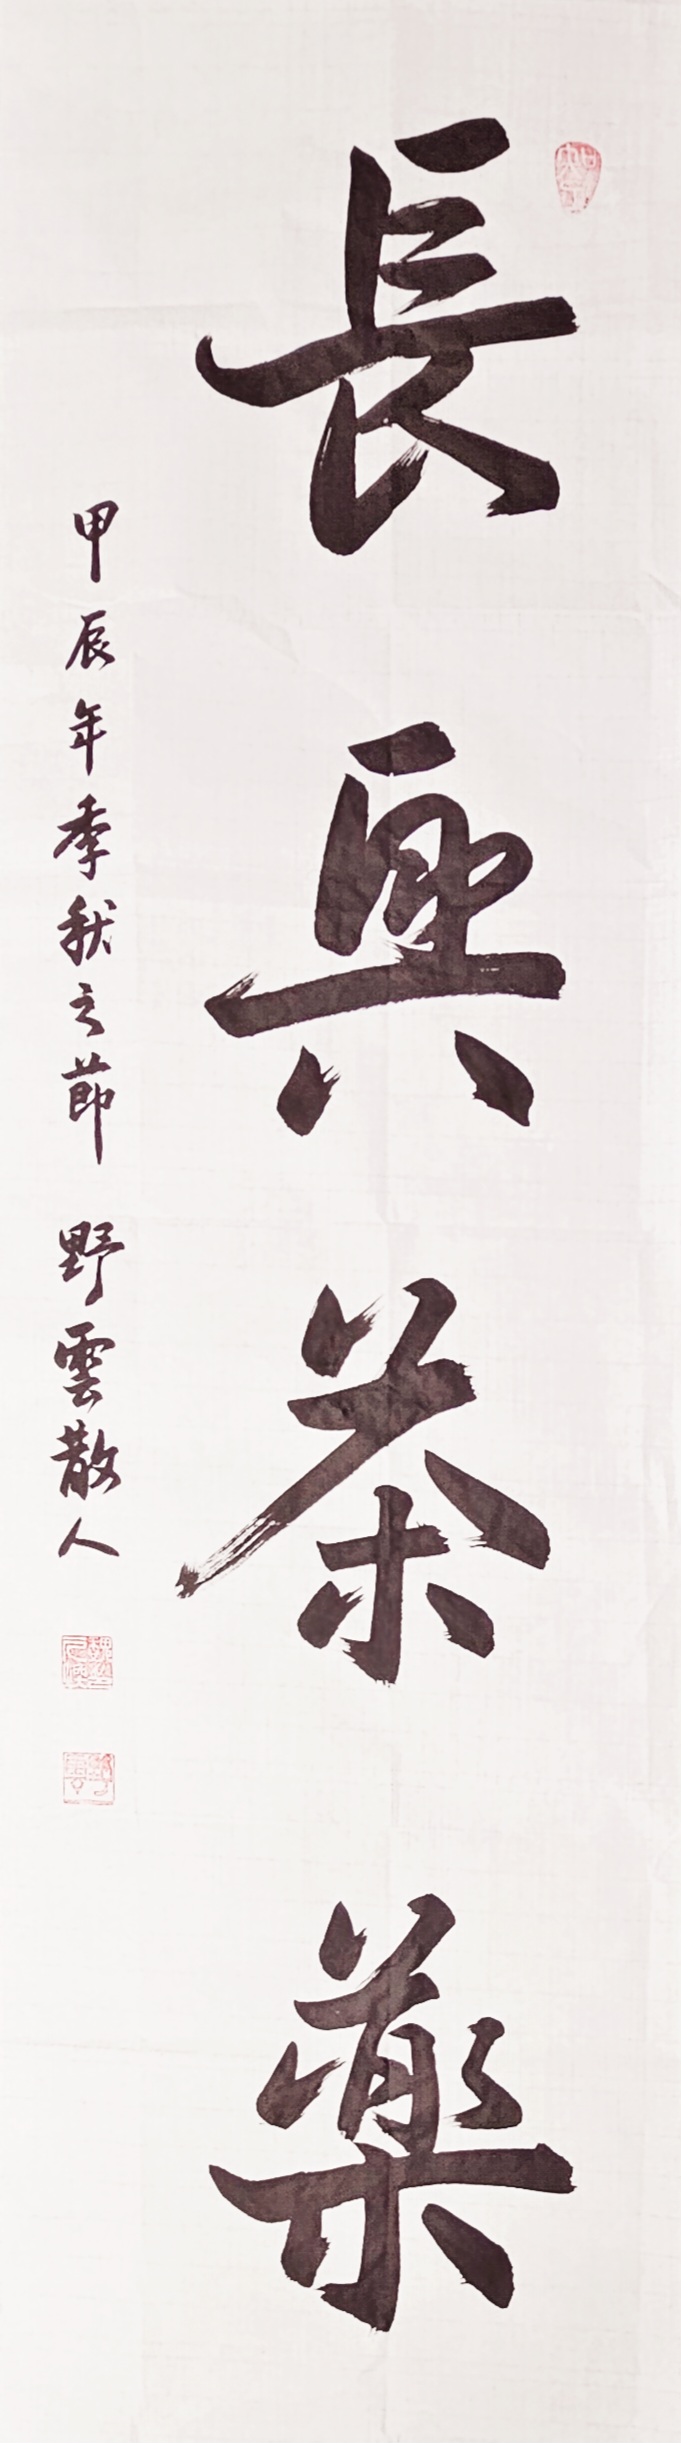 長興茶藥
甲辰年季秋之節 野雲散人